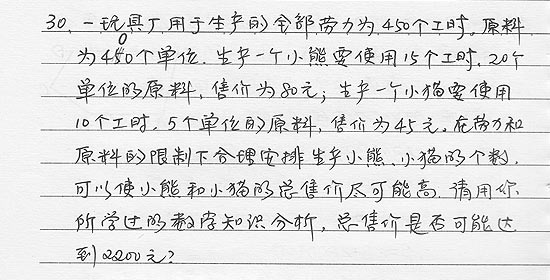 30、一玩具厂用于生产的全部劳力为450个工时，原料
为400个单位。生产一个小熊要使用15个工时、20个
单位的原料，售价为80元；生产一个小猫要使用
10个工时、5个单位的原料，售价为45元。在劳力和
原料的限制下合理安排生产小熊、小猫的个数，
可以使小熊和小猫的总售价尽可能高。请用你
所学过的数学知识分析，总售价是否可能达
到2200元？